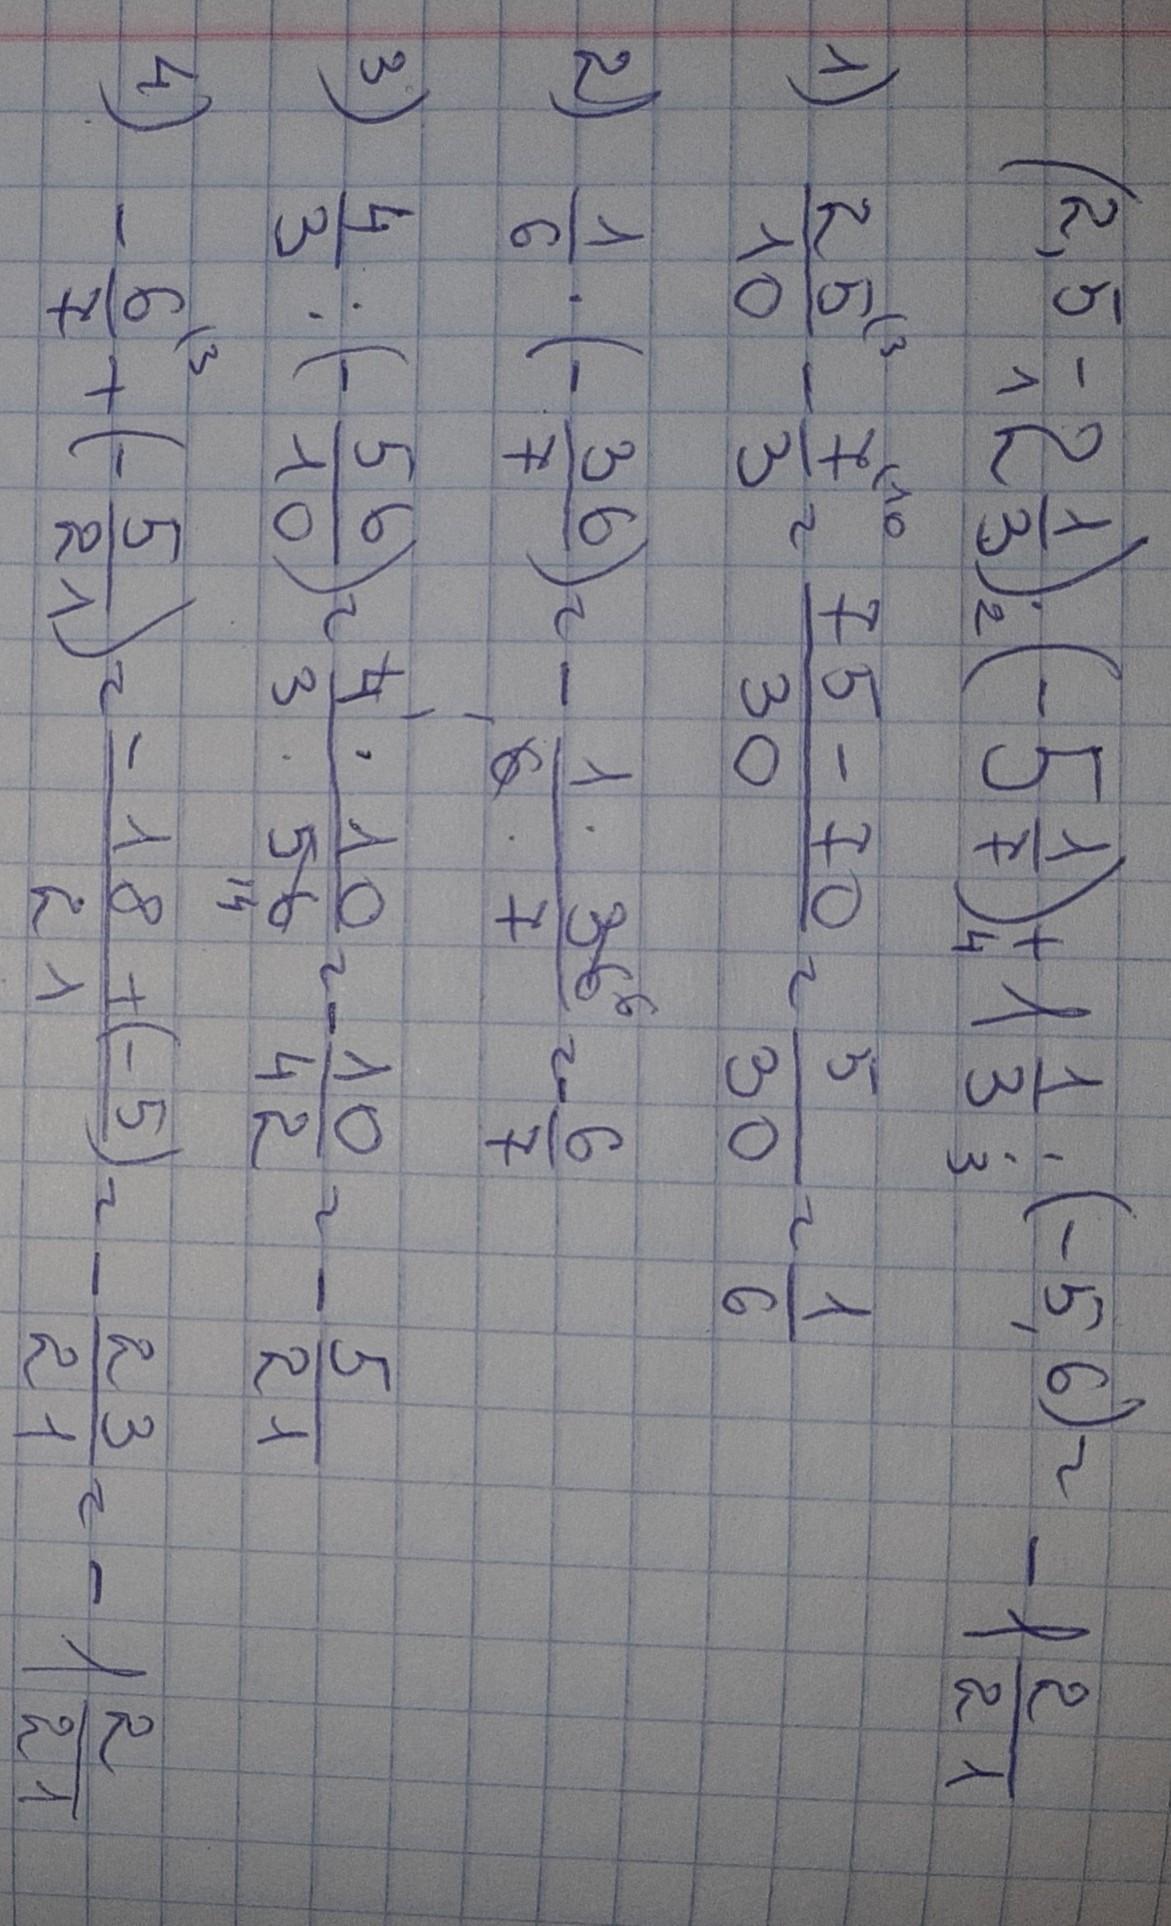 (2,5 - 2 1/3) · (-5 1/7) + 1 1/3 : (-5,6) = -1 2/21
1 2 4 3
1) 25/10 (3 - 7/3 (10 = (75 - 70)/30 = 5/30 = 1/6
2) 1/6 · (-36/7) = - (1 · 36 6)/(6 1 · 7) = -6/7
3) 4/3 : (-56/10) = (4 1 · 10)/(3 · 56 14) = -10/42 = -5/21
4) -6/7 (3 + (-5/21) = (-18 + (-5))/21 = -23/21 = -1 2/21